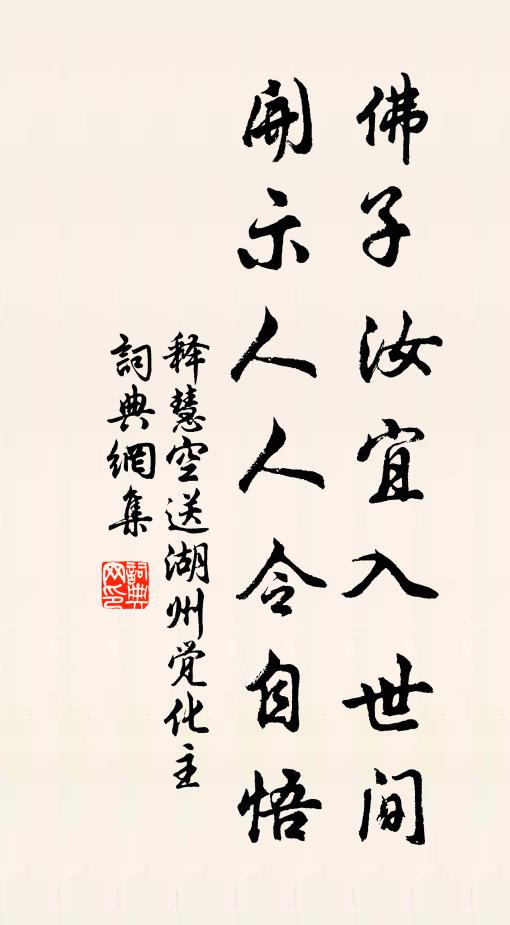 佛子汝宜入世间
開示人人令自悟
释慧空送湖州觉化主
詞典網集
詞典网印